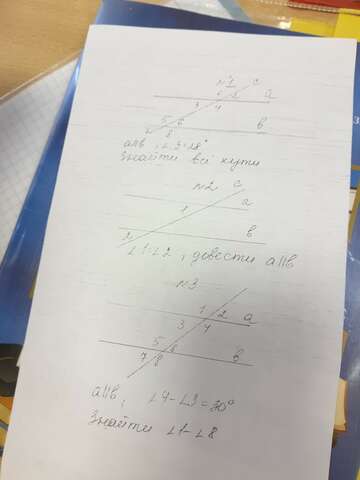 №1
c
1 2 a
3 4
5 6 b
7 8
a||b, ∠3=28°
Знайти всі кути
№2
c
a
1
b
2
∠1=∠2, довести a||b
№3
1 2 a
3 4
5 6
7 8 b
a||b, ∠4-∠3=30°
Знайти ∠1-∠8